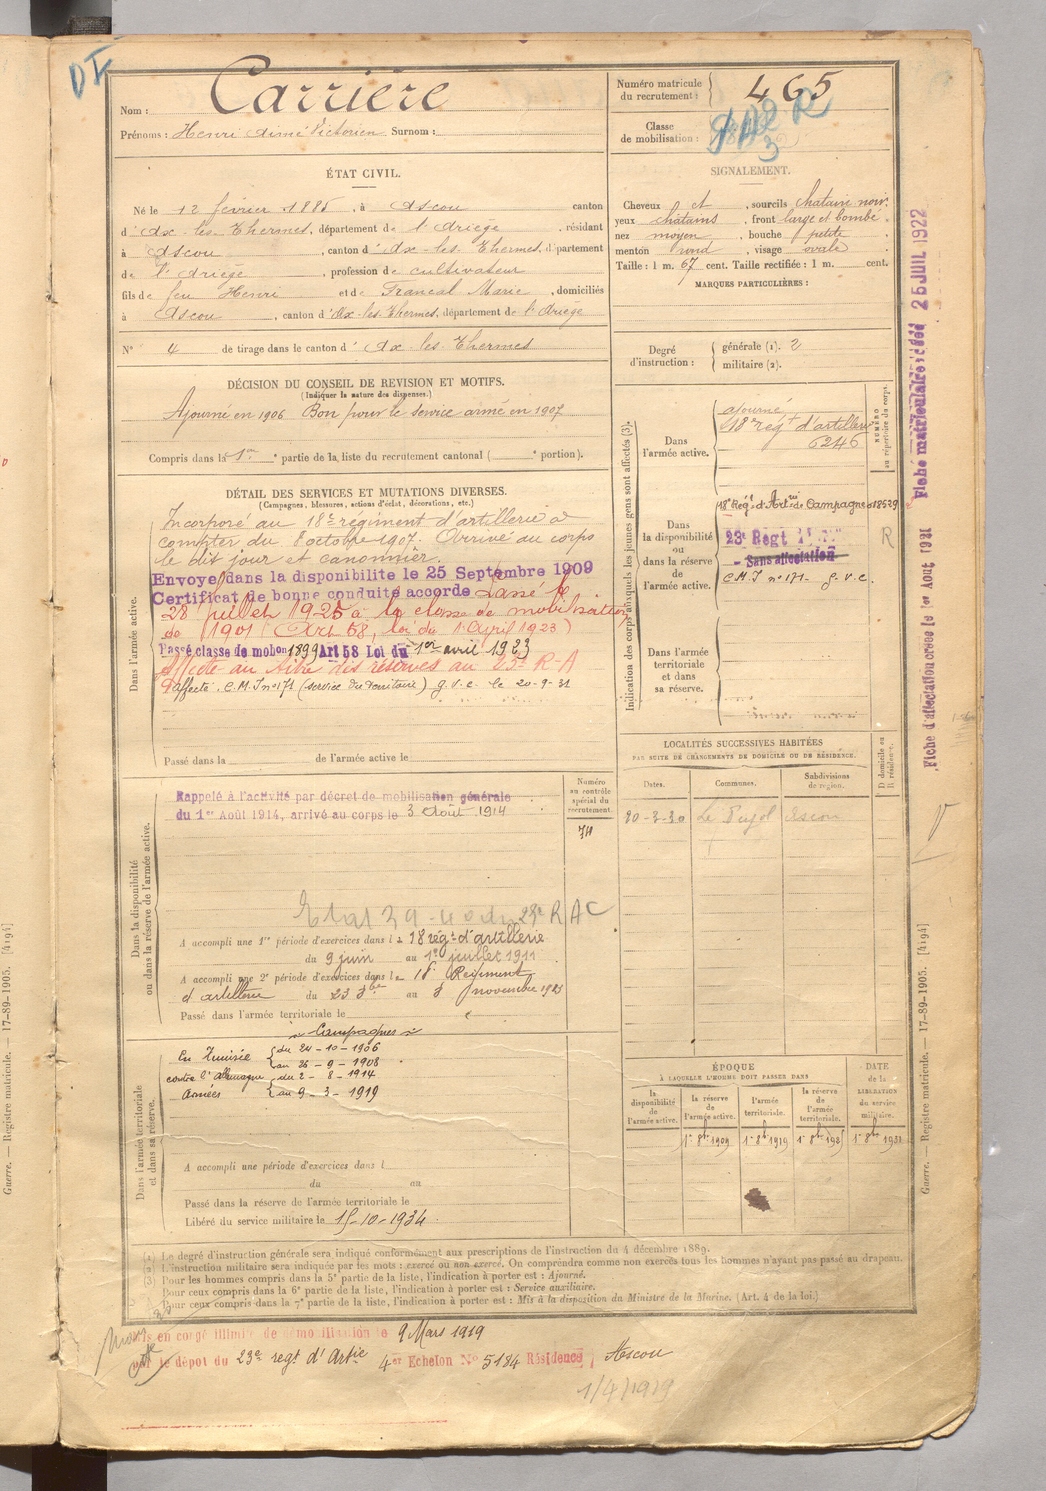 Nom : Carrière
Prénoms : Henri Aimé Victorien Surnom :
Numéro matricule du recrutement : 465
Classe de mobilisation :
ÉTAT CIVIL.
Né le 12 février 1886, à Ascou canton
d'Ax-les-Thermes, département de l'Ariège, résidant
à Ascou, canton d'Ax-les-Thermes, département
de l'Ariège, profession de cultivateur
fils de feu Henri et de Francal Marie, domiciliés
à Ascou, canton d'Ax-les-Thermes, département de l'Ariège
N° 4 de tirage dans le canton d'Ax-les-Thermes
SIGNALEMENT.
Cheveux et, sourcils chatain noir.
yeux chatains, front large et bombé.
nez moyen, bouche petite
menton rond, visage ovale
Taille : 1 m. 67 cent. Taille rectifiée : 1 m. cent.
MARQUES PARTICULIÈRES :
Degré d'instruction : générale (1). 2
militaire (2).
DÉCISION DU CONSEIL DE REVISION ET MOTIFS.
(Indiquer la nature des dispenses.)
Ajourné en 1906 Bon pour le service armé en 1907
Compris dans la 1re partie de la liste du recrutement cantonal ( e portion).
DÉTAIL DES SERVICES ET MUTATIONS DIVERSES.
(Campagnes, blessures, actions d'éclat, décorations, etc.)
Dans l'armée active.
Incorporé au 18e régiment d'artillerie à
compter du 8 octobre 1907. Arrivé au corps
le dit jour et canonnier.
Envoyé dans la disponibilite le 25 Septembre 1909
Certificat de bonne conduite accorde Passé le
28 juillet 1925 à la classe de mobilisation
de 1901 (Art 58, loi du 1 Avril 1923)
Passé classe de mobon 1899 Art 58 Loi du 1er avril 1923
Affecté au titre des réserves au 23e R-A
Affecté. C.M.I n° 171 (service du territoire) g.v.c. le 20-9-31
Passé dans la de l'armée active le
Indication des corps auxquels les jeunes gens sont affectés (3).
NUMÉRO au répertoire du corps.
Dans l'armée active.
ajourné
18e régt d'artillerie
6246
Dans la disponibilité ou dans la réserve de l'armée active.
18e Régt d'Artrie de Campagne 018539
23e Regt
- Sans affectation
C.M.I n° 171 - g.v.c.
R
Dans l'armée territoriale et dans sa réserve.
LOCALITÉS SUCCESSIVES HABITÉES
PAR SUITE DE CHANGEMENTS DE DOMICILE OU DE RÉSIDENCE.
D domicile ou R résidence.
Dates. Communes. Subdivisions de région.
20-3-30 Le Pujol Ascou
Dans la disponibilité ou dans la réserve de l'armée active.
Numéro au contrôle spécial du recrutement.
Rappelé à l'activité par décret de mobilisation générale
du 1er Août 1914, arrivé au corps le 3 Août 1914
Etat 39-40 du 23e RAC
A accompli une 1re période d'exercices dans le 18 régt d'artillerie
du 9 juin au 1er juillet 1911
A accompli une 2e période d'exercices dans le 18e Régiment
d'artillerie du 23 8bre au 8 novembre 1913
Passé dans l'armée territoriale le
Campagnes
En Tunisie du 24-10-1906
au 26-9-1908
contre l'Allemagne du 2-8-1914
Armées au 9-3-1919
Dans l'armée territoriale et dans sa réserve.
A accompli une période d'exercices dans l
du au
Passé dans la réserve de l'armée territoriale le
Libéré du service militaire le 15-10-1934
ÉPOQUE
À LAQUELLE L'HOMME DOIT PASSER DANS
DATE de la LIBÉRATION du service militaire.
la disponibilité de l'armée active. la réserve de l'armée active. l'armée territoriale. la réserve de l'armée territoriale.
1er 8bre 1909 1er 8bre 1919 1er 8bre 1925 1er 8bre 1931
(1) Le degré d'instruction générale sera indiqué conformément aux prescriptions de l'instruction du 4 décembre 1889.
(2) L'instruction militaire sera indiquée par les mots : exercé ou non exercé. On comprendra comme non exercés tous les hommes n'ayant pas passé au drapeau.
(3) Pour les hommes compris dans la 5e partie de la liste, l'indication à porter est : Ajourné.
Pour ceux compris dans la 6e partie de la liste, l'indication à porter est : Service auxiliaire.
Pour ceux compris dans la 7e partie de la liste, l'indication à porter est : Mis à la disposition du Ministre de la Marine. (Art. 4 de la loi.)
Mis en congé illimité de démobilisation le 9 Mars 1919
le dépot du 23e regt d'Artie 4er Echelon N° 5184 Résidence, Ascou
1/4/1919
Fiche d'affectation créée le 1er Août 1921 Fiche matriculaire créée 25 JUIL 1922
Guerre. — Registre matricule. — 17-89-1905. [4194]
Guerre. — Registre matricule. — 17-89-1905. [4194]